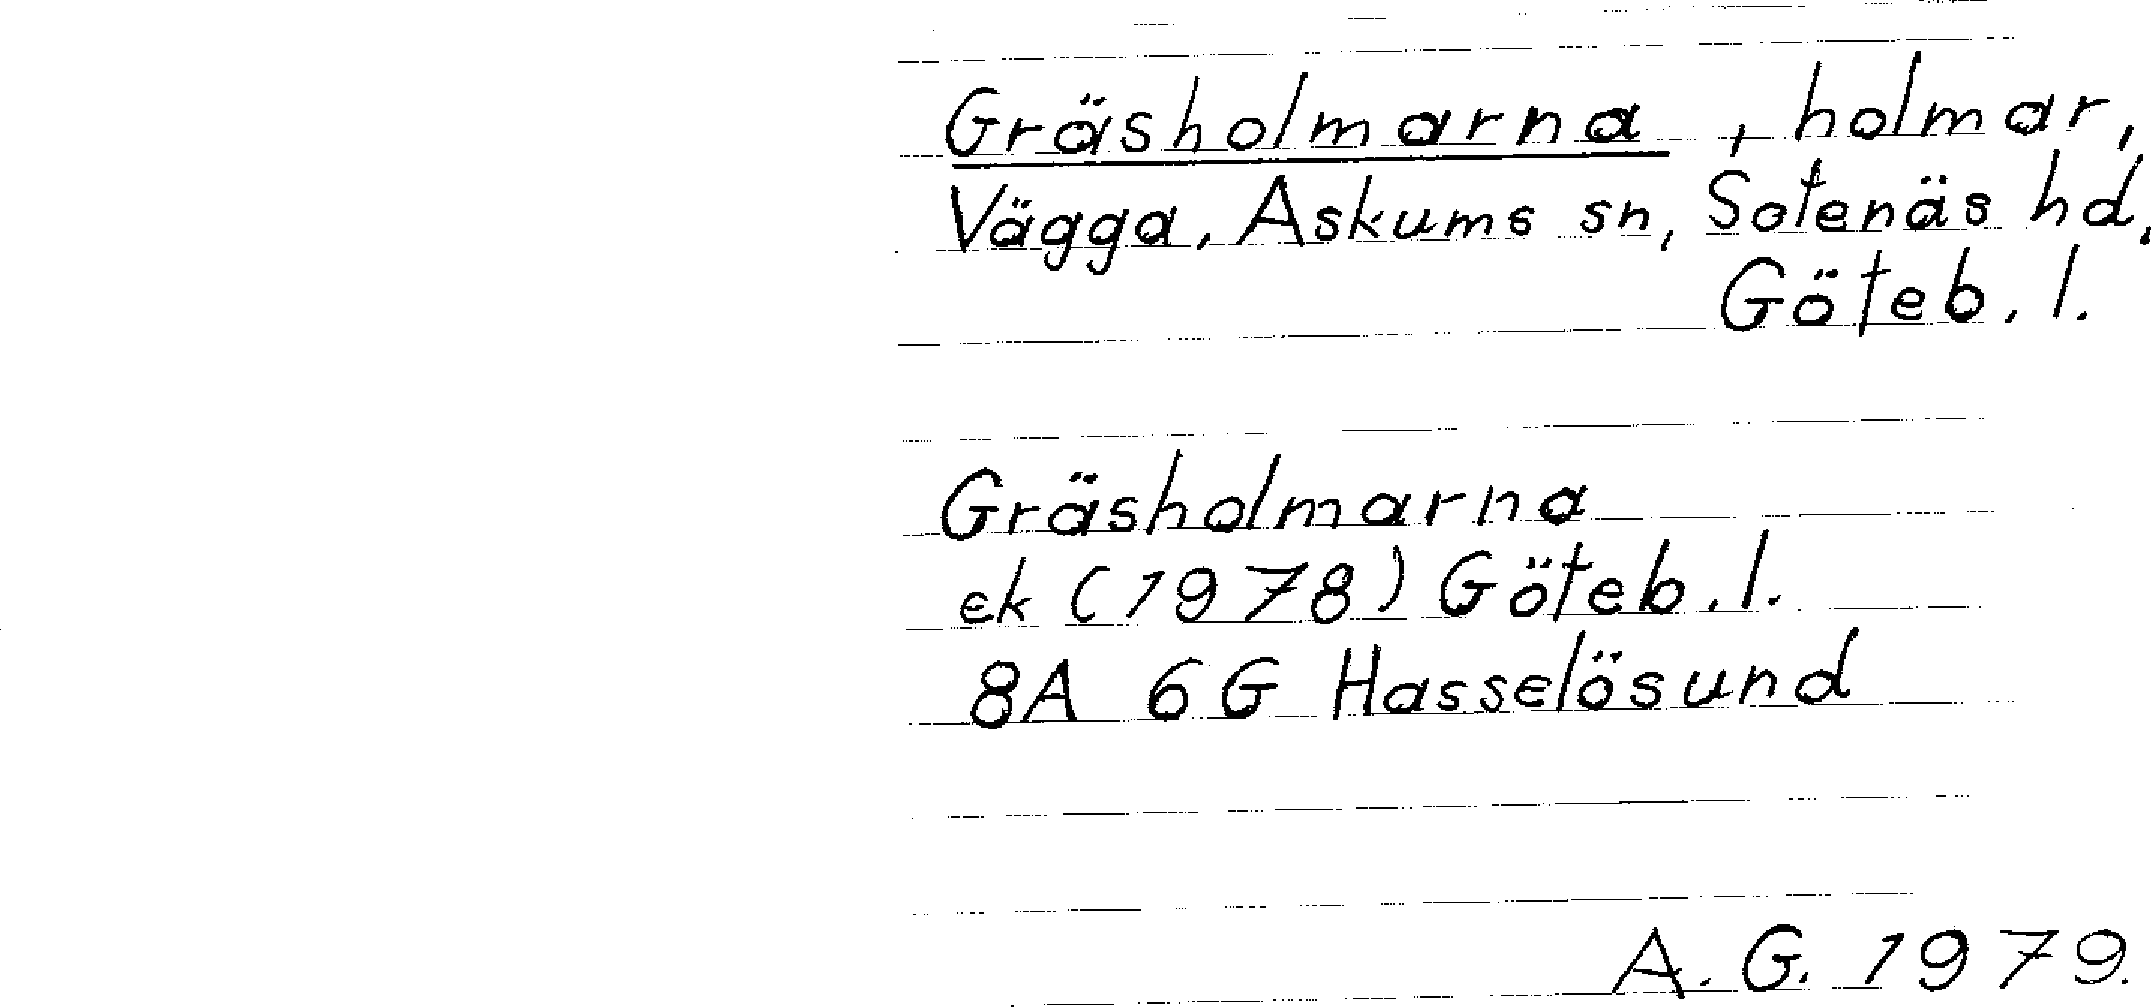 Gräsholmarna, holmar,
Vägga, Askums sn, Sotenäs hd,
Göteb. l.
Gräsholmarna
ek (1978) Göteb. l.
8A 6G Hasselösund
A. G. 1979.